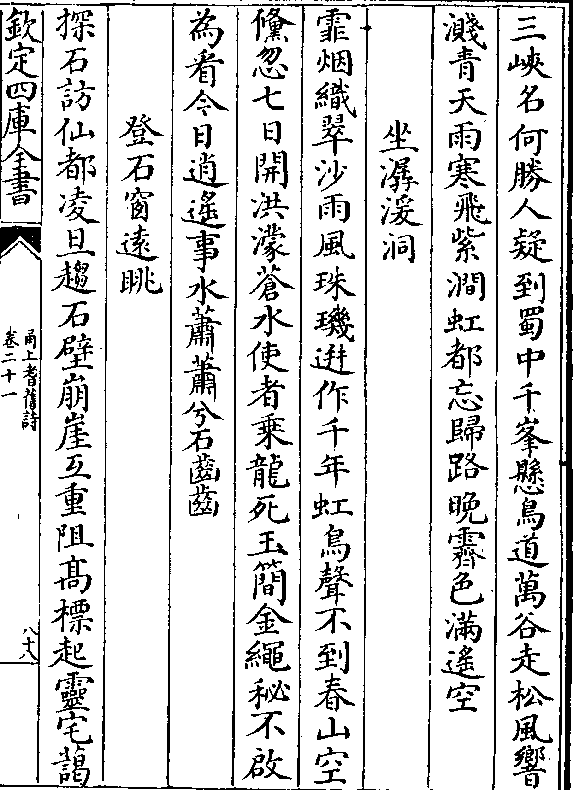 三峽名何勝人疑到蜀中千峯懸鳥道萬谷走松風響
濺青天雨寒飛紫澗虹都忘歸路晚霽色滿遙空
坐潺湲洞
霏烟織翠沙雨風珠璣迸作千年虹鳥聲不到春山空
儵忽七日開洪濛蒼水使者乘龍死玉簡金繩秘不啟
為看今日逍遙事水蕭蕭兮石齒齒
登石窗遠眺
探石訪仙都凌旦趨石壁崩崖互重阻髙標起靈宅藹
欽定四庫全書
甬上耆舊詩
卷二十一
八十八